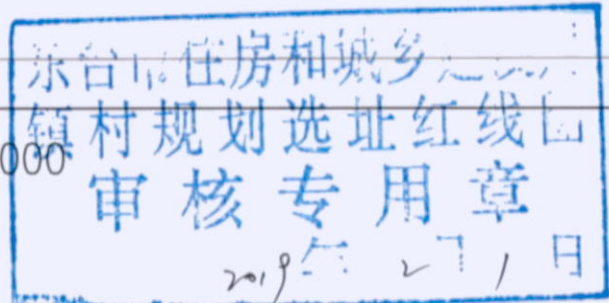 东台市住房和城乡
镇村规划选址红线
000
审核专用章
2019年 2月1日